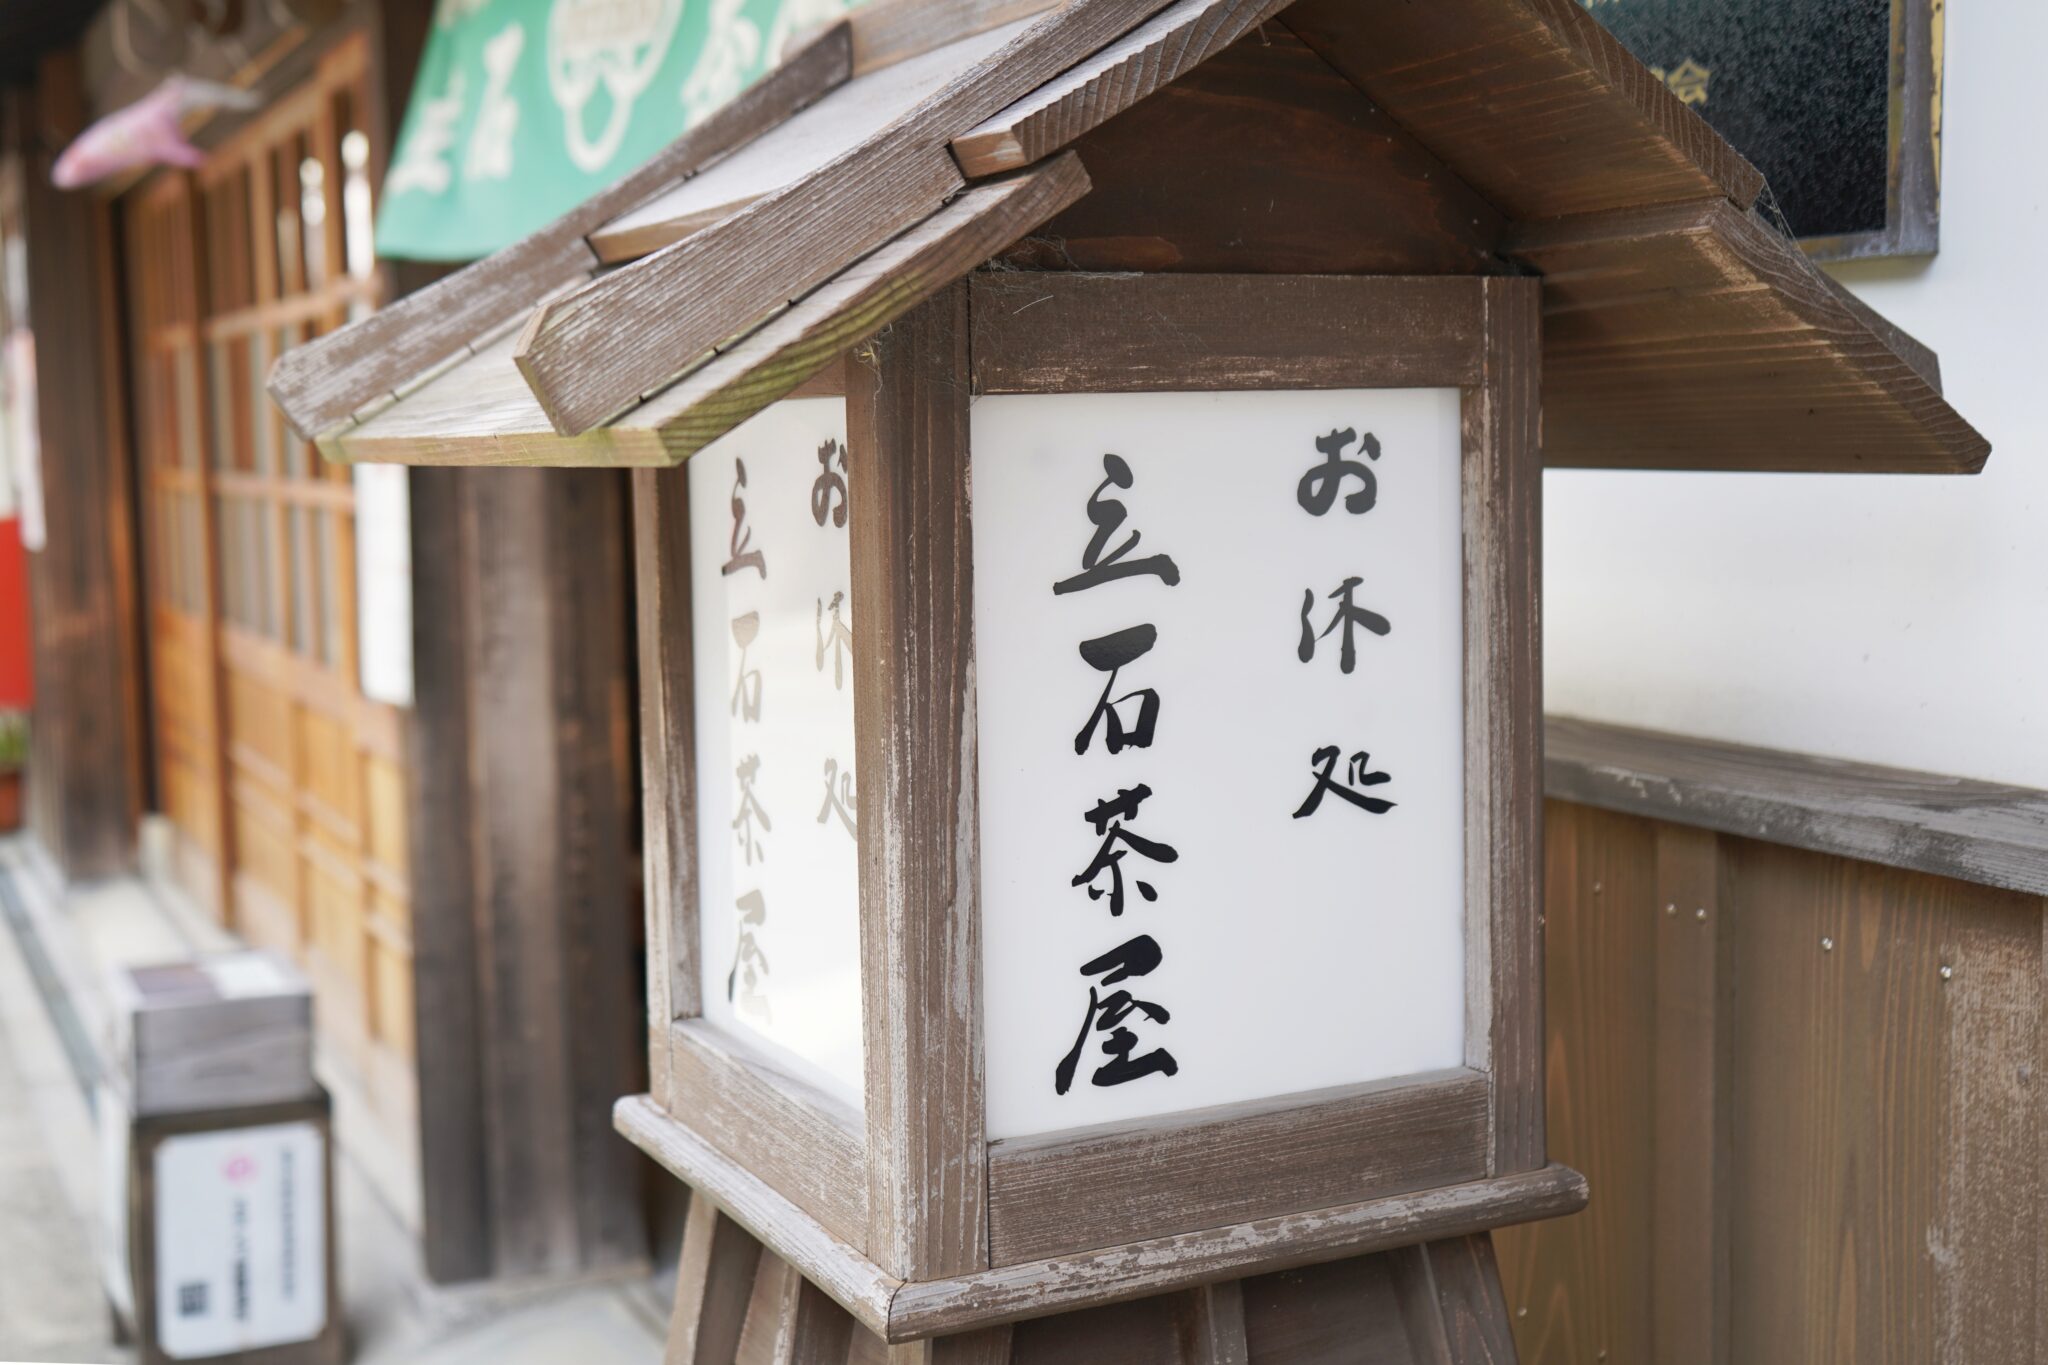 お休処
立石茶屋
お休処
立石茶屋
立石茶